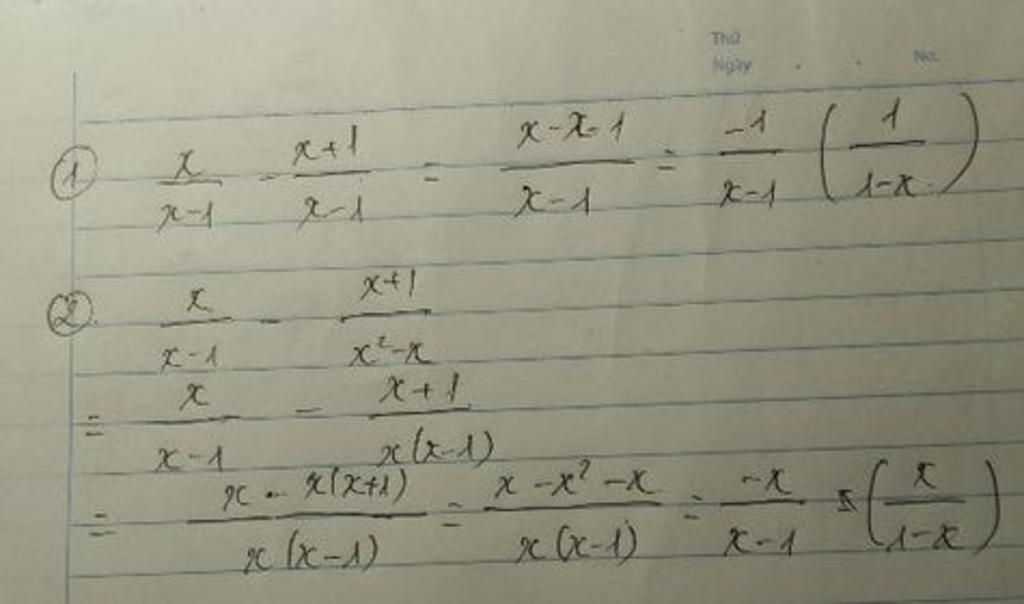 Thứ
Ngày . . No.
① x/(x-1) - (x+1)/(x-1) = (x-x-1)/(x-1) = -1/(x-1) (1/(1-x))
②. x/(x-1) - (x+1)/(x²-x)
= x/(x-1) - (x+1)/(x(x-1))
= (x - x(x+1))/(x(x-1)) = (x-x²-x)/(x(x-1)) = -x/(x-1) (x/(1-x))